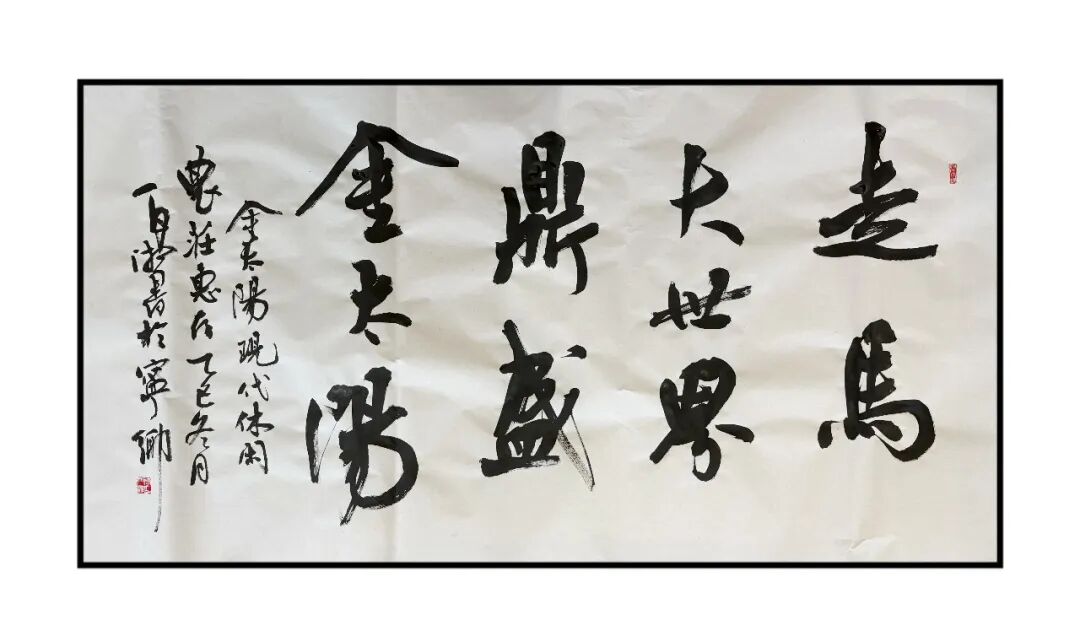 走馬
大世界
鼎盛
金太陽
金太陽現代休閑
農莊惠存乙巳冬月
書於寧鄉